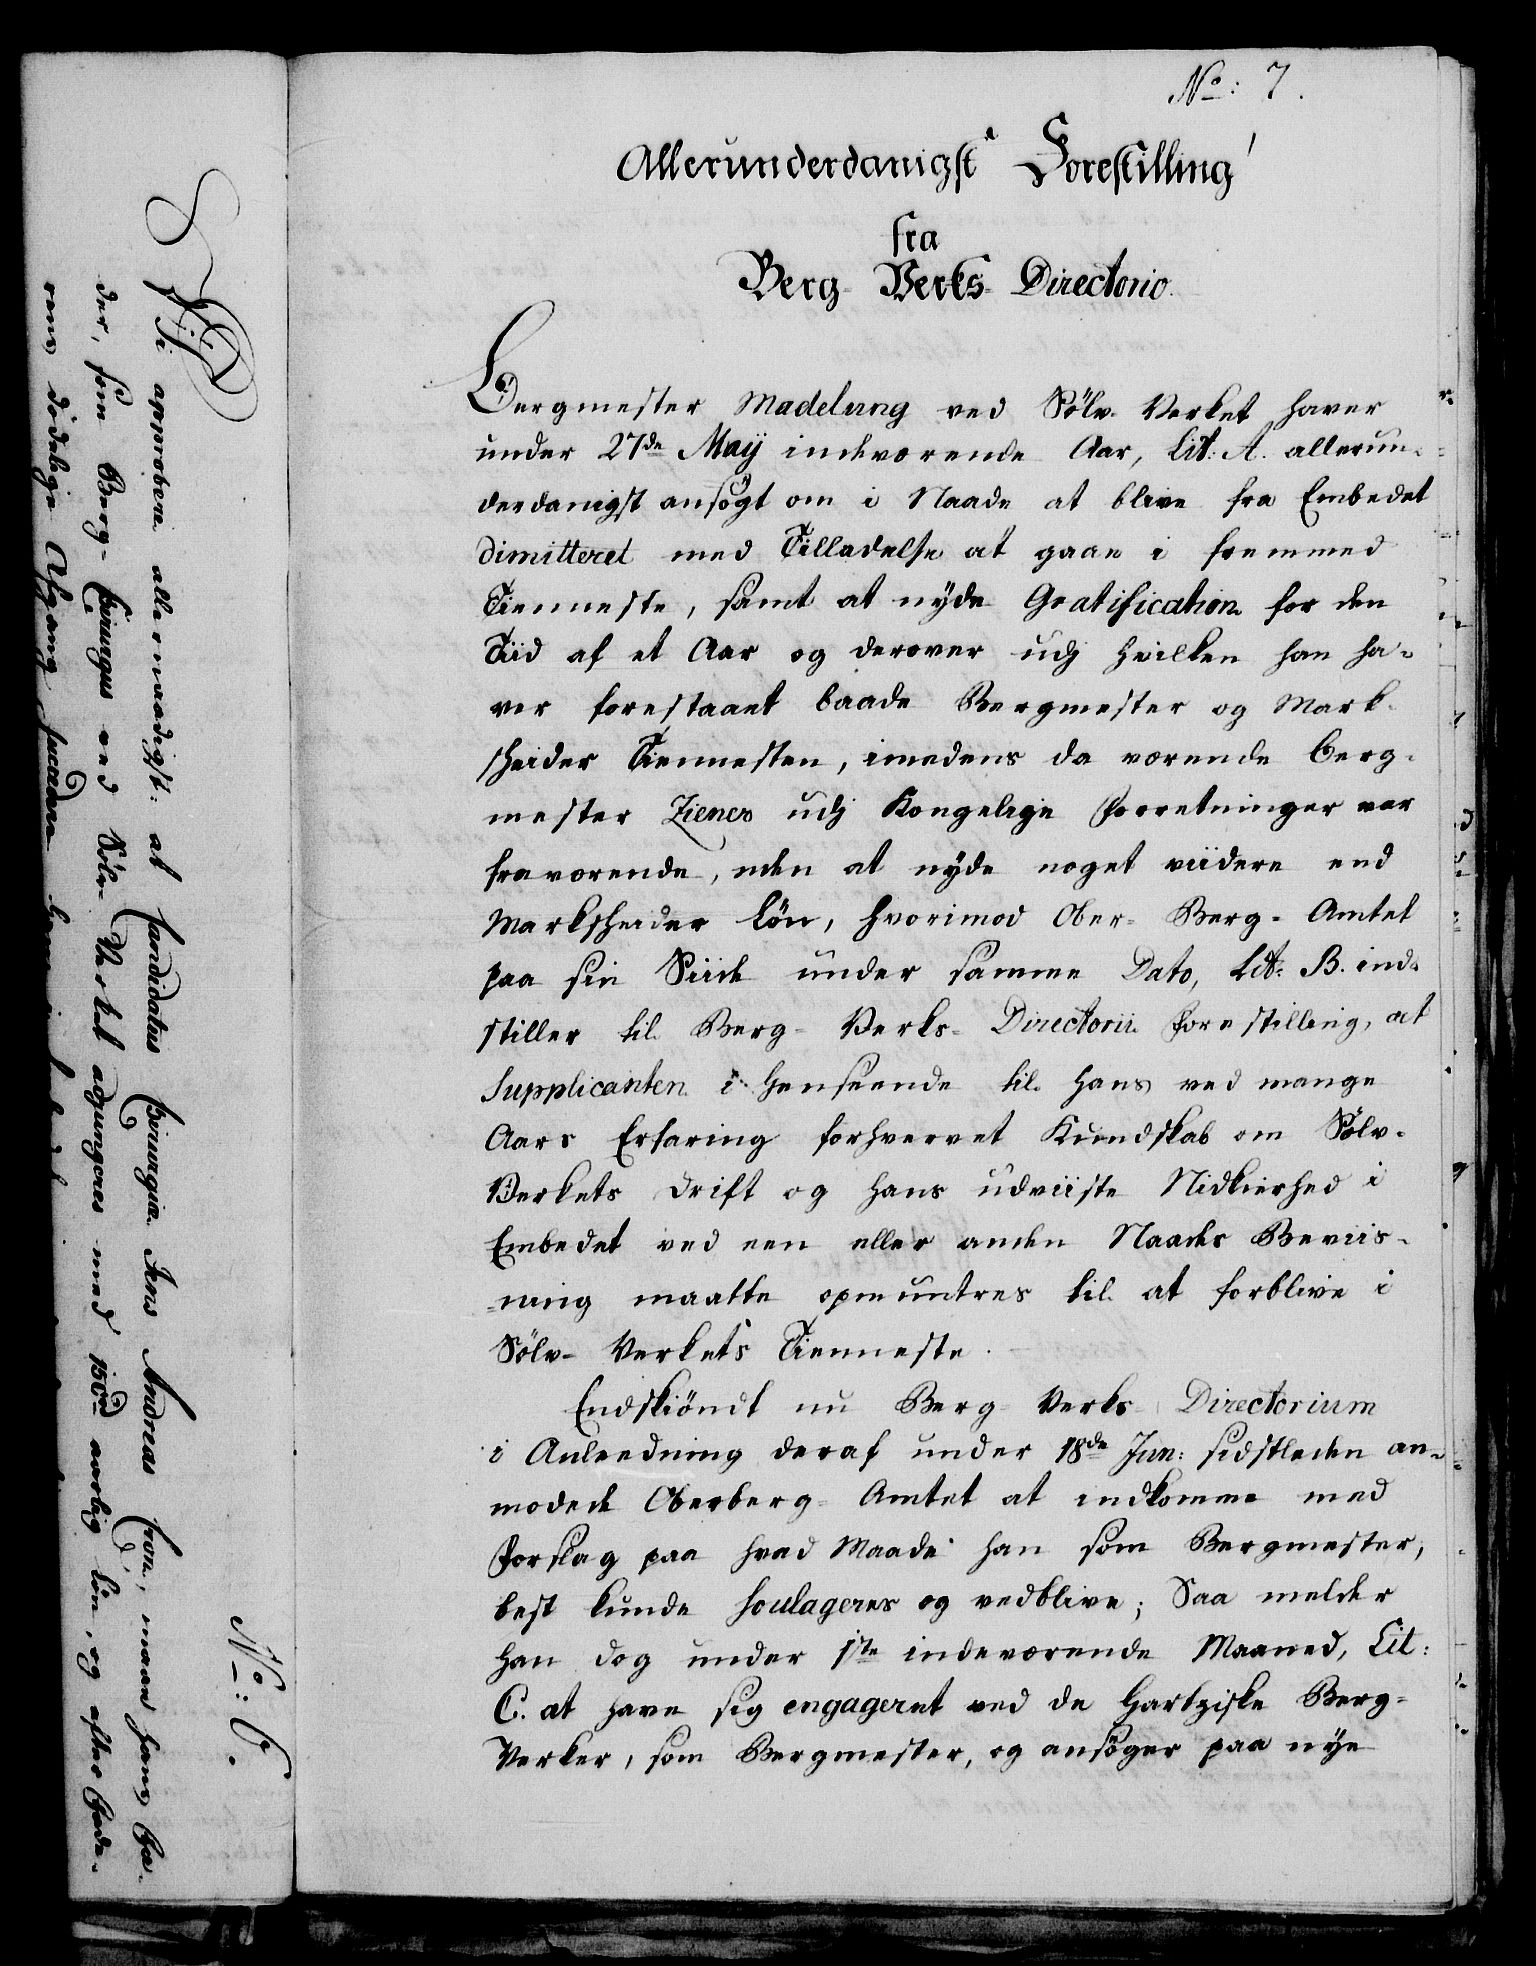 No: 7.
Allerunderdanigst Forestilling
fra
Berg- Verks- Directorio.
Bergmester Madelung ved Sölv- Verket haver
under 27de Maÿ indeværende Aar, Lit: A. allerun-
derdanigst ansögt om i Naade at blive fra Embedet
dimitteret med Tilladelse at gaae i fremmed
Tienneste, samt at nÿde Gratification for den
Tiid af et Aar og derover udj hvilken han ha-
ver forestaaet baade Bergmester og Mark-
sheider Tiennesten, imedens da værende Berg-
mester Ziener udj Kongelige Forretninger var
fraværende, uden at nÿde noget viidere end
Marksheider Lön, hvorimod Ober- Berg- Amtet
paa sin Siide under samme Dato, Lit: B. ind-
stiller til Berg- Verks- Directorii Forestilling, at
Supplicanten i Henseende til hans ved mange
Aars Erfaring forhvervet Kundskab om Sölv-
Verkets Drift og hans udviiste Nidkierhed i
Embedet ved een eller anden Naades Beviis-
ning maatte opmuntres til at forblive i
Sölv- Verkets Tienneste.
Endskiöndt nu Berg- Verks- Directorium
i Anleedning deraf under 18de Jun: sidstleden an-
modede Oberberg- Amtet at indkomme med
Forslag paa hvad Maade han som Bergmester,
best kunde soulageres og vedblive; Saa melder
han dog under 1ste indeværende Maaned, Lit:
C. at have sig engageret ved de Hartziske Berg-
Verker, som Bergmester, og ansöger paa nÿe
No: 6.
Vi approbere allernaadigst: at Candidatus Chirurgiæ Jens Andreas maae hans Fa-
der, som Berg- Chirurgus ved Sölv- Verket adjungeres med 150rd aarlig Lön, og efter Fade-
rens dödelige Afgang succedere ham i